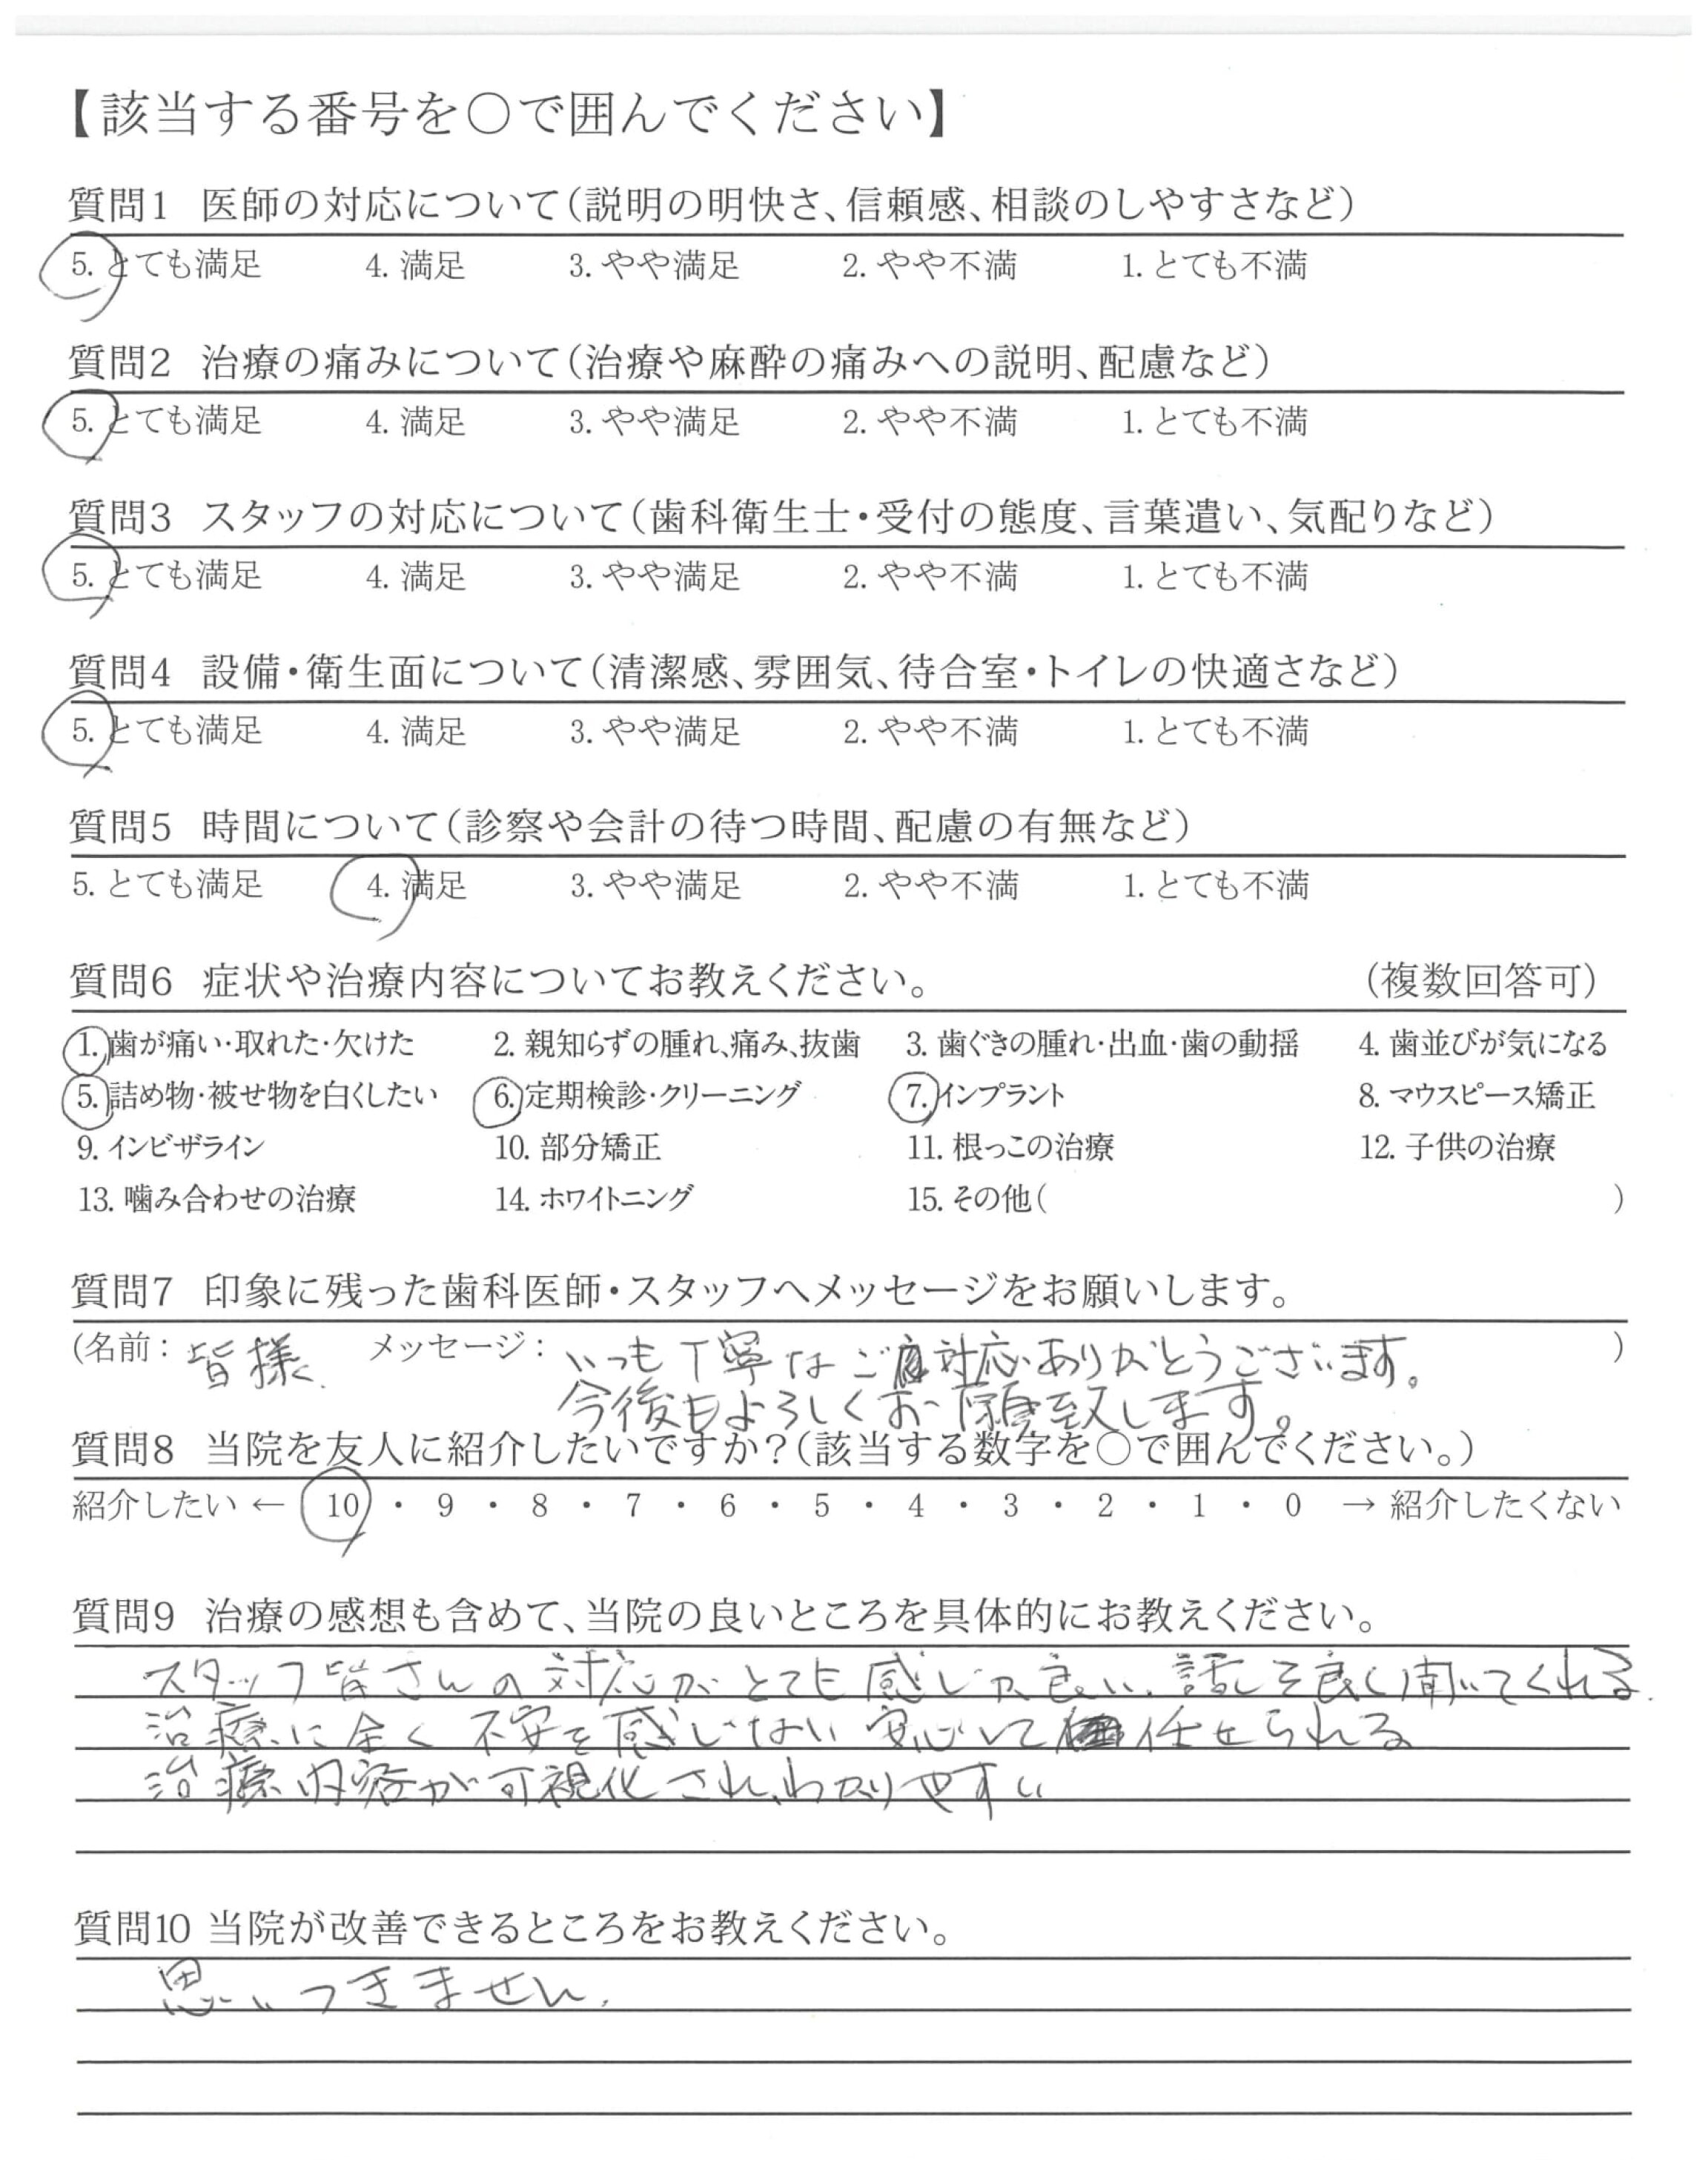 【該当する番号を○で囲んでください】
質問1 医師の対応について(説明の明快さ、信頼感、相談のしやすさなど)
5. とても満足 4. 満足 3. やや満足 2. やや不満 1. とても不満
質問2 治療の痛みについて(治療や麻酔の痛みへの説明、配慮など)
5. とても満足 4. 満足 3. やや満足 2. やや不満 1. とても不満
質問3 スタッフの対応について(歯科衛生士・受付の態度、言葉遣い、気配りなど)
5. とても満足 4. 満足 3. やや満足 2. やや不満 1. とても不満
質問4 設備・衛生面について(清潔感、雰囲気、待合室・トイレの快適さなど)
5. とても満足 4. 満足 3. やや満足 2. やや不満 1. とても不満
質問5 時間について(診察や会計の待つ時間、配慮の有無など)
5. とても満足 4. 満足 3. やや満足 2. やや不満 1. とても不満
質問6 症状や治療内容についてお教えください。 (複数回答可)
1. 歯が痛い・取れた・欠けた 2. 親知らずの腫れ、痛み、抜歯 3. 歯ぐきの腫れ・出血・歯の動揺 4. 歯並びが気になる
5. 詰め物・被せ物を白くしたい 6. 定期検診・クリーニング 7. インプラント 8. マウスピース矯正
9. インビザライン 10. 部分矯正 11. 根っこの治療 12. 子供の治療
13. 噛み合わせの治療 14. ホワイトニング 15. その他( )
質問7 印象に残った歯科医師・スタッフへメッセージをお願いします。
(名前: 皆様. メッセージ: いつも丁寧なご対応ありがとうございます。 )
今後もよろしくお願致します。
質問8 当院を友人に紹介したいですか?(該当する数字を○で囲んでください。)
紹介したい ← 10 ・ 9 ・ 8 ・ 7 ・ 6 ・ 5 ・ 4 ・ 3 ・ 2 ・ 1 ・ 0 → 紹介したくない
質問9 治療の感想も含めて、当院の良いところを具体的にお教えください。
スタッフ皆さんの対応がとても感じが良い、話しを良く聞いてくれる.
治療に全く不安を感じない 安心して任せられる
治療内容が可視化され、わかりやすい
質問10 当院が改善できるところをお教えください。
思いつきません.